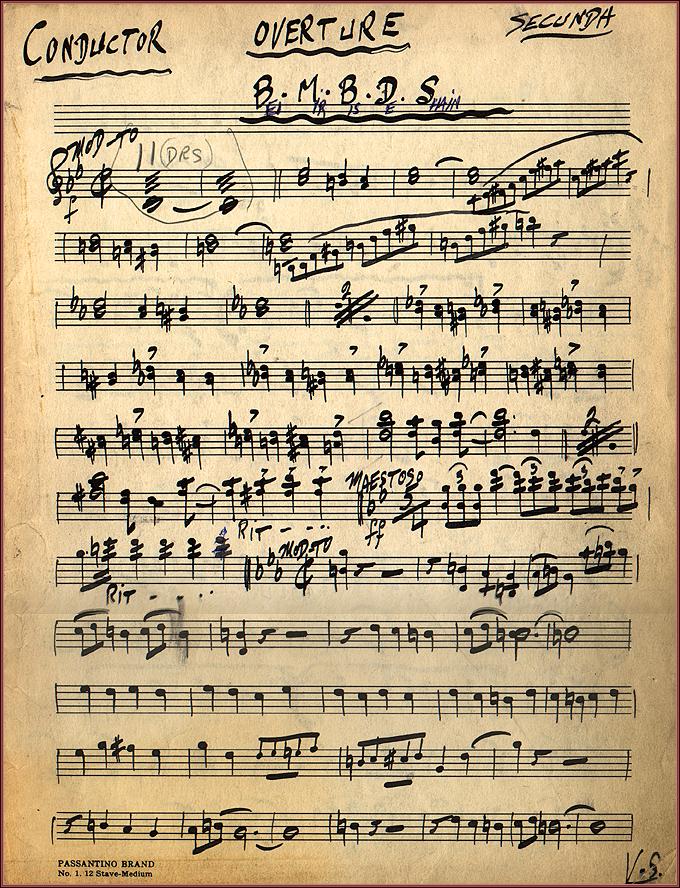 CONDUCTOR OVERTURE SECUNDA
B. M. B. D. S.
EI IR IS E HAIN
MOD-TO 11 (DRS)
f
2
7 7 7
7 7 7 7
7 7 2
MAESTOSO 3 3 3
RIT - - - ff 3/4
MOD-TO
RIT - - - -
PASSANTINO BRAND
No. 1. 12 Stave-Medium
V.S.